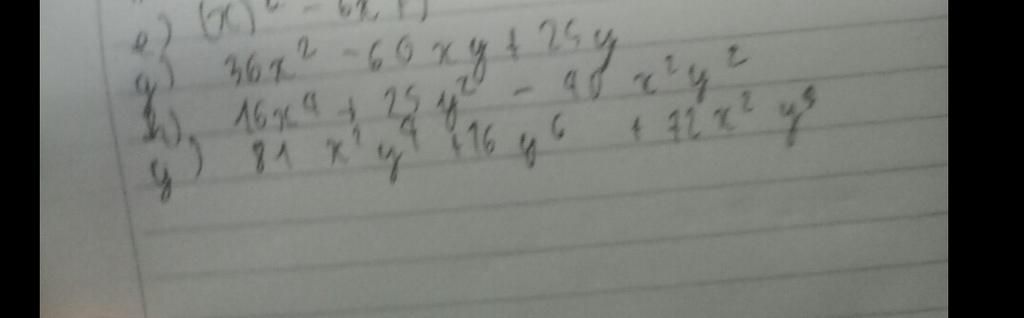 e) (x)² - 6x
g) 36x² - 60xy + 25y
h), 16x⁴ + 25y² - 40 x²y²
y) 81 x² y⁴ + 16 y⁶ + 72x² y⁵